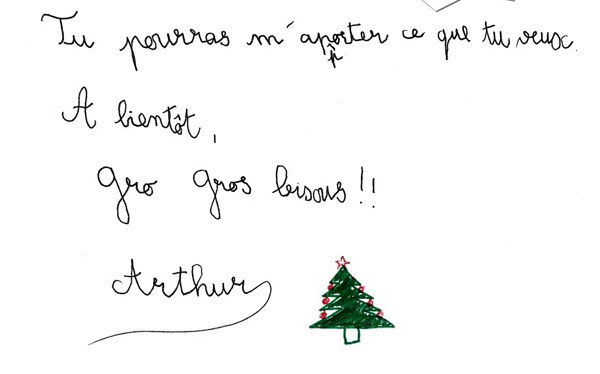 Tu pourras m'aporter ce que tu veux.
p
A bientôt,
gro gros bisous !!
Arthur